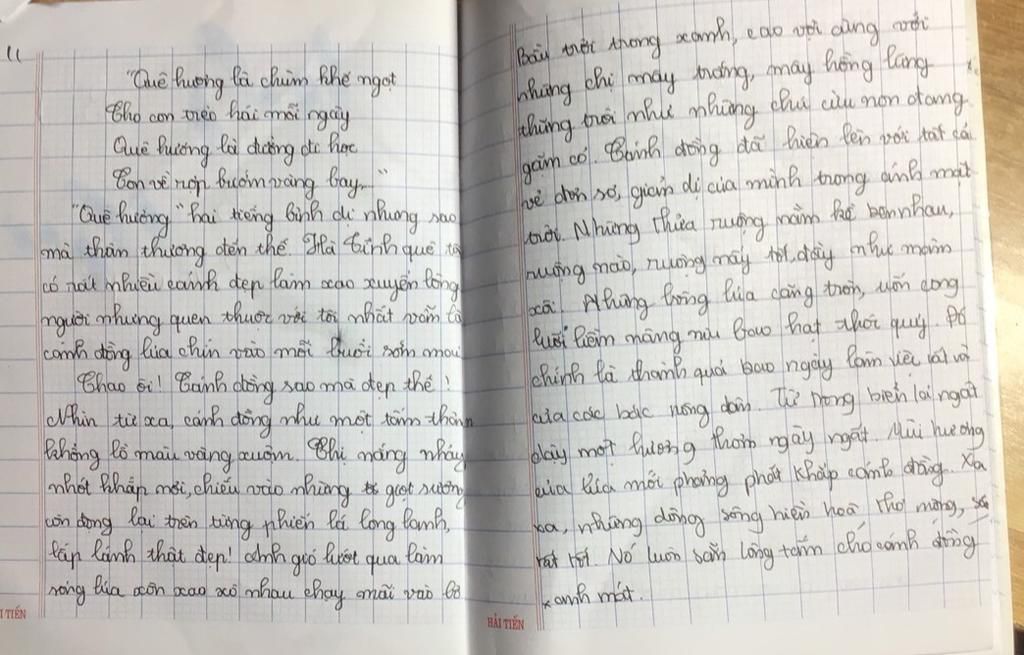 "Quê hương là chùm khế ngọt
Cho con trèo hái mỗi ngày
Quê hương là đường đi học
Con về rợp bướm vàng bay..."
"Quê hương" hai tiếng bình dị nhưng sao
mà thân thương đến thế. Hà Tĩnh quê tôi
có rất nhiều cảnh đẹp làm xao xuyến lòng
người nhưng quen thuộc với tôi nhất vẫn là
cánh đồng lúa chín vào mỗi buổi sớm mai
Chao ôi! Cánh đồng sao mà đẹp thế!
Nhìn từ xa, cánh đồng như một tấm thảm
khổng lồ màu vàng xuộm. Chị nắng nhảy
nhót khắp nơi, chiếu vào những giọt sương
còn đọng lại trên từng phiến lá long lanh,
lấp lánh thật đẹp! Anh gió lướt qua làm
sóng lúa xôn xao xô nhau chạy mãi vào bờ
HẢI TIẾN
Bầu trời trong xanh, cao vợi cùng với
những chị mây trắng, mây hồng lang
thang trôi như những chú cừu non đang
gặm cỏ. Cánh đồng đã hiện lên với tất cả
vẻ đơn sơ, giản dị của mình trong ánh mặt
trời. Những thửa ruộng nằm kề bên nhau,
ruộng nào, ruộng nấy tốt, đầy như mâm
xôi. Những bông lúa căng tròn, uốn cong
lưỡi liềm mang nặng bao hạt thóc quý. Đó
chính là thành quả bao ngày làm việc vất vả
của các bác nông dân. Từ trong biển lại ngát
dậy một hương thơm ngây ngất. Mùi hương
của lúa mới phảng phất khắp cánh đồng. Xa
xa, những dòng sông hiền hoà thơ mộng,
rất tốt. Nó luôn sẵn lòng tắm cho cánh đồng
xanh mát.
HẢI TIẾN